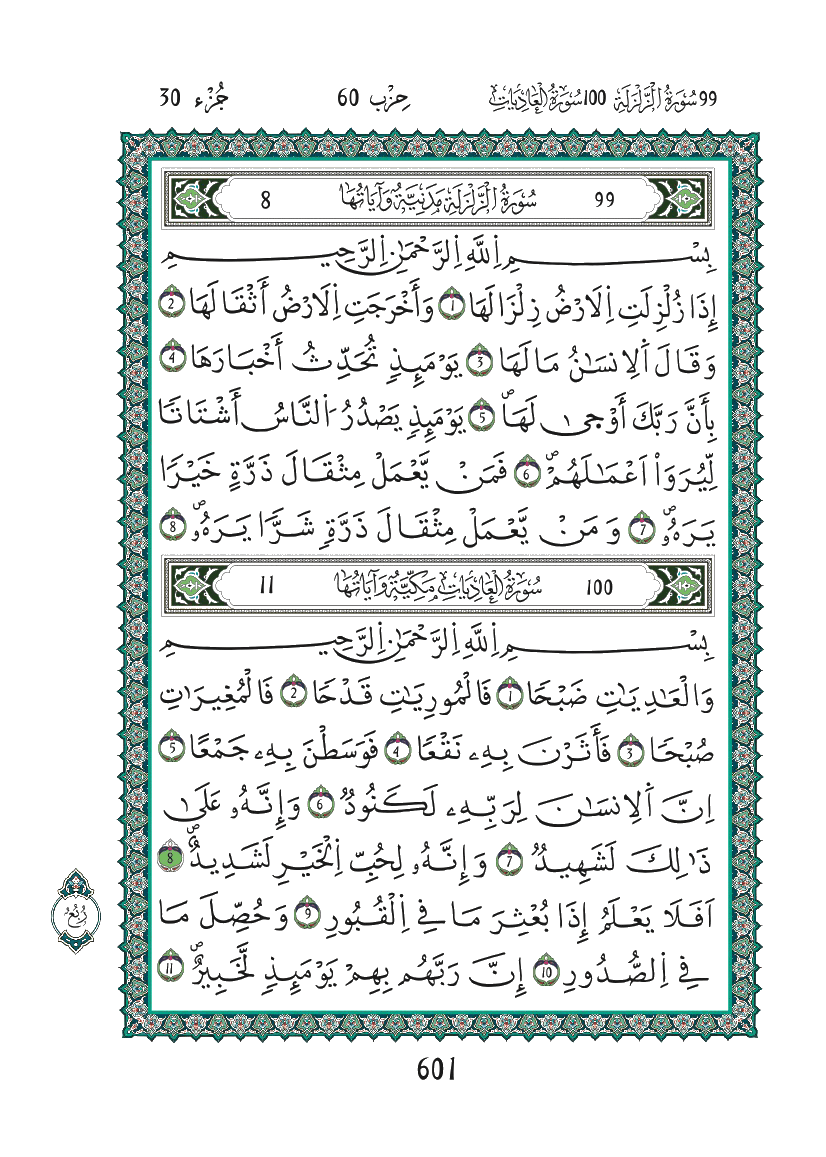 99 سُورَةُ الزَّلْزَلَةِ 100 سُورَةُ الْعَادِيَاتِ حِزْب 60 جُزْء 30
99 سُورَةُ الزَّلْزَلَةِ مَدَنِيَّةٌ وَآيَاتُهَا 8
بِسْمِ اِللَّهِ اِلرَّحْمَٰنِ اِلرَّحِيمِ
إِذَا زُلْزِلَتِ اِلَارْضُ زِلْزَالَهَا 1 وَأَخْرَجَتِ اِلَارْضُ أَثْقَالَهَا 2
وَقَالَ اَلِانسَٰنُ مَا لَهَا 3 يَوْمَئِذٖ تُحَدِّثُ أَخْبَارَهَا 4
بِأَنَّ رَبَّكَ أَوْحىٰ لَهَاۖ 5 يَوْمَئِذٖ يَصْدُرُ اَلنَّاسُ أَشْتَاتٗا
لِّيُرَوَاْ اَعْمَٰلَهُمْۖ 6 فَمَنْ يَّعْمَلْ مِثْقَالَ ذَرَّةٍ خَيْرٗا
يَرَهُۥۖ 7 وَمَنْ يَّعْمَلْ مِثْقَالَ ذَرَّةٖ شَرّٗا يَرَهُۥۖ 8
100 سُورَةُ الْعَادِيَاتِ مَكِّيَّةٌ وَآيَاتُهَا 11
بِسْمِ اِللَّهِ اِلرَّحْمَٰنِ اِلرَّحِيمِ
وَالْعَٰدِيَٰتِ ضَبْحٗا 1 فَالْمُورِيَٰتِ قَدْحٗا 2 فَالْمُغِيرَٰتِ
صُبْحٗا 3 فَأَثَرْنَ بِهِۦ نَقْعٗا 4 فَوَسَطْنَ بِهِۦ جَمْعًا 5
اِنَّ اَلِانسَٰنَ لِرَبِّهِۦ لَكَنُودٞ 6 وَإِنَّهُۥ عَلَىٰ
ذَٰلِكَ لَشَهِيدٞ 7 وَإِنَّهُۥ لِحُبِّ اِلْخَيْرِ لَشَدِيدٌۖ 8
اَفَلَا يَعْلَمُ إِذَا بُعْثِرَ مَا فِي اِلْقُبُورِ 9 وَحُصِّلَ مَا
فِي اِلصُّدُورِ 10 إِنَّ رَبَّهُم بِهِمْ يَوْمَئِذٖ لَّخَبِيرٌۖ 11
رُبُع
601